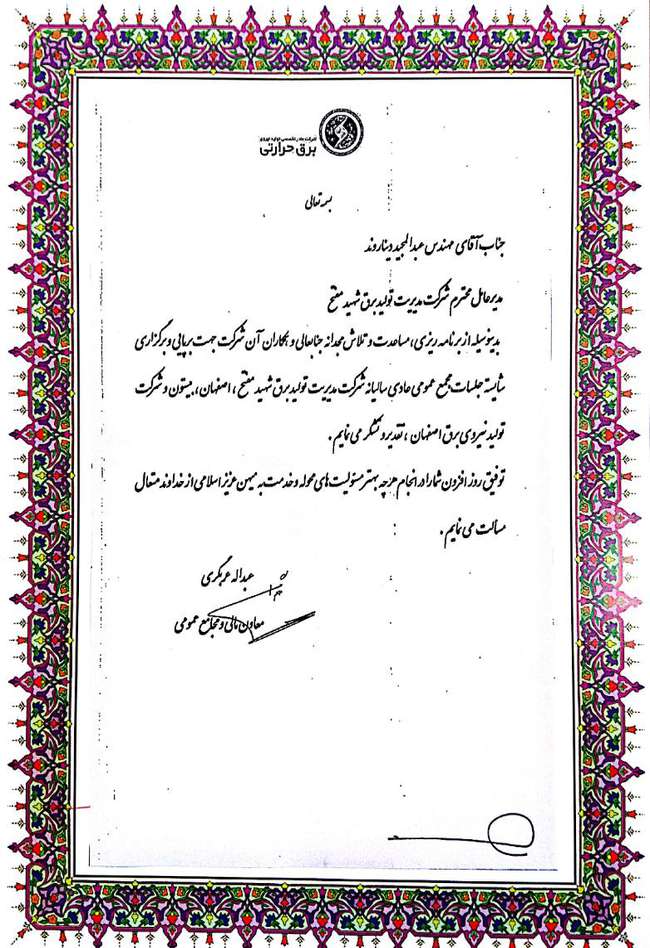 شرکت مادر تخصصی تولید نیروی
برق حرارتی
بسمه تعالی
جناب آقای مهندس عبدالمجید دیناروند
مدیرعامل محترم شرکت مدیریت تولید برق شهید مفتح
بدینوسیله از برنامه ریزی، مساعدت و تلاش مجدانه جنابعالی و همکاران آن شرکت جهت برپایی و برگزاری
شایسته جلسات مجمع عمومی عادی سالیانه شرکت مدیریت تولید برق شهید مفتح ، اصفهان ، بیستون و شرکت
تولید نیروی برق اصفهان ، تقدیر و تشکر می نمایم .
توفیق روز افزون شما را در انجام هرچه بهتر مسئولیت های محوله و خدمت به میهن عزیز اسلامی از خداوند متعال
مسالت می نمایم .
عبداله عربگری
معاون مالی و مجامع عمومی